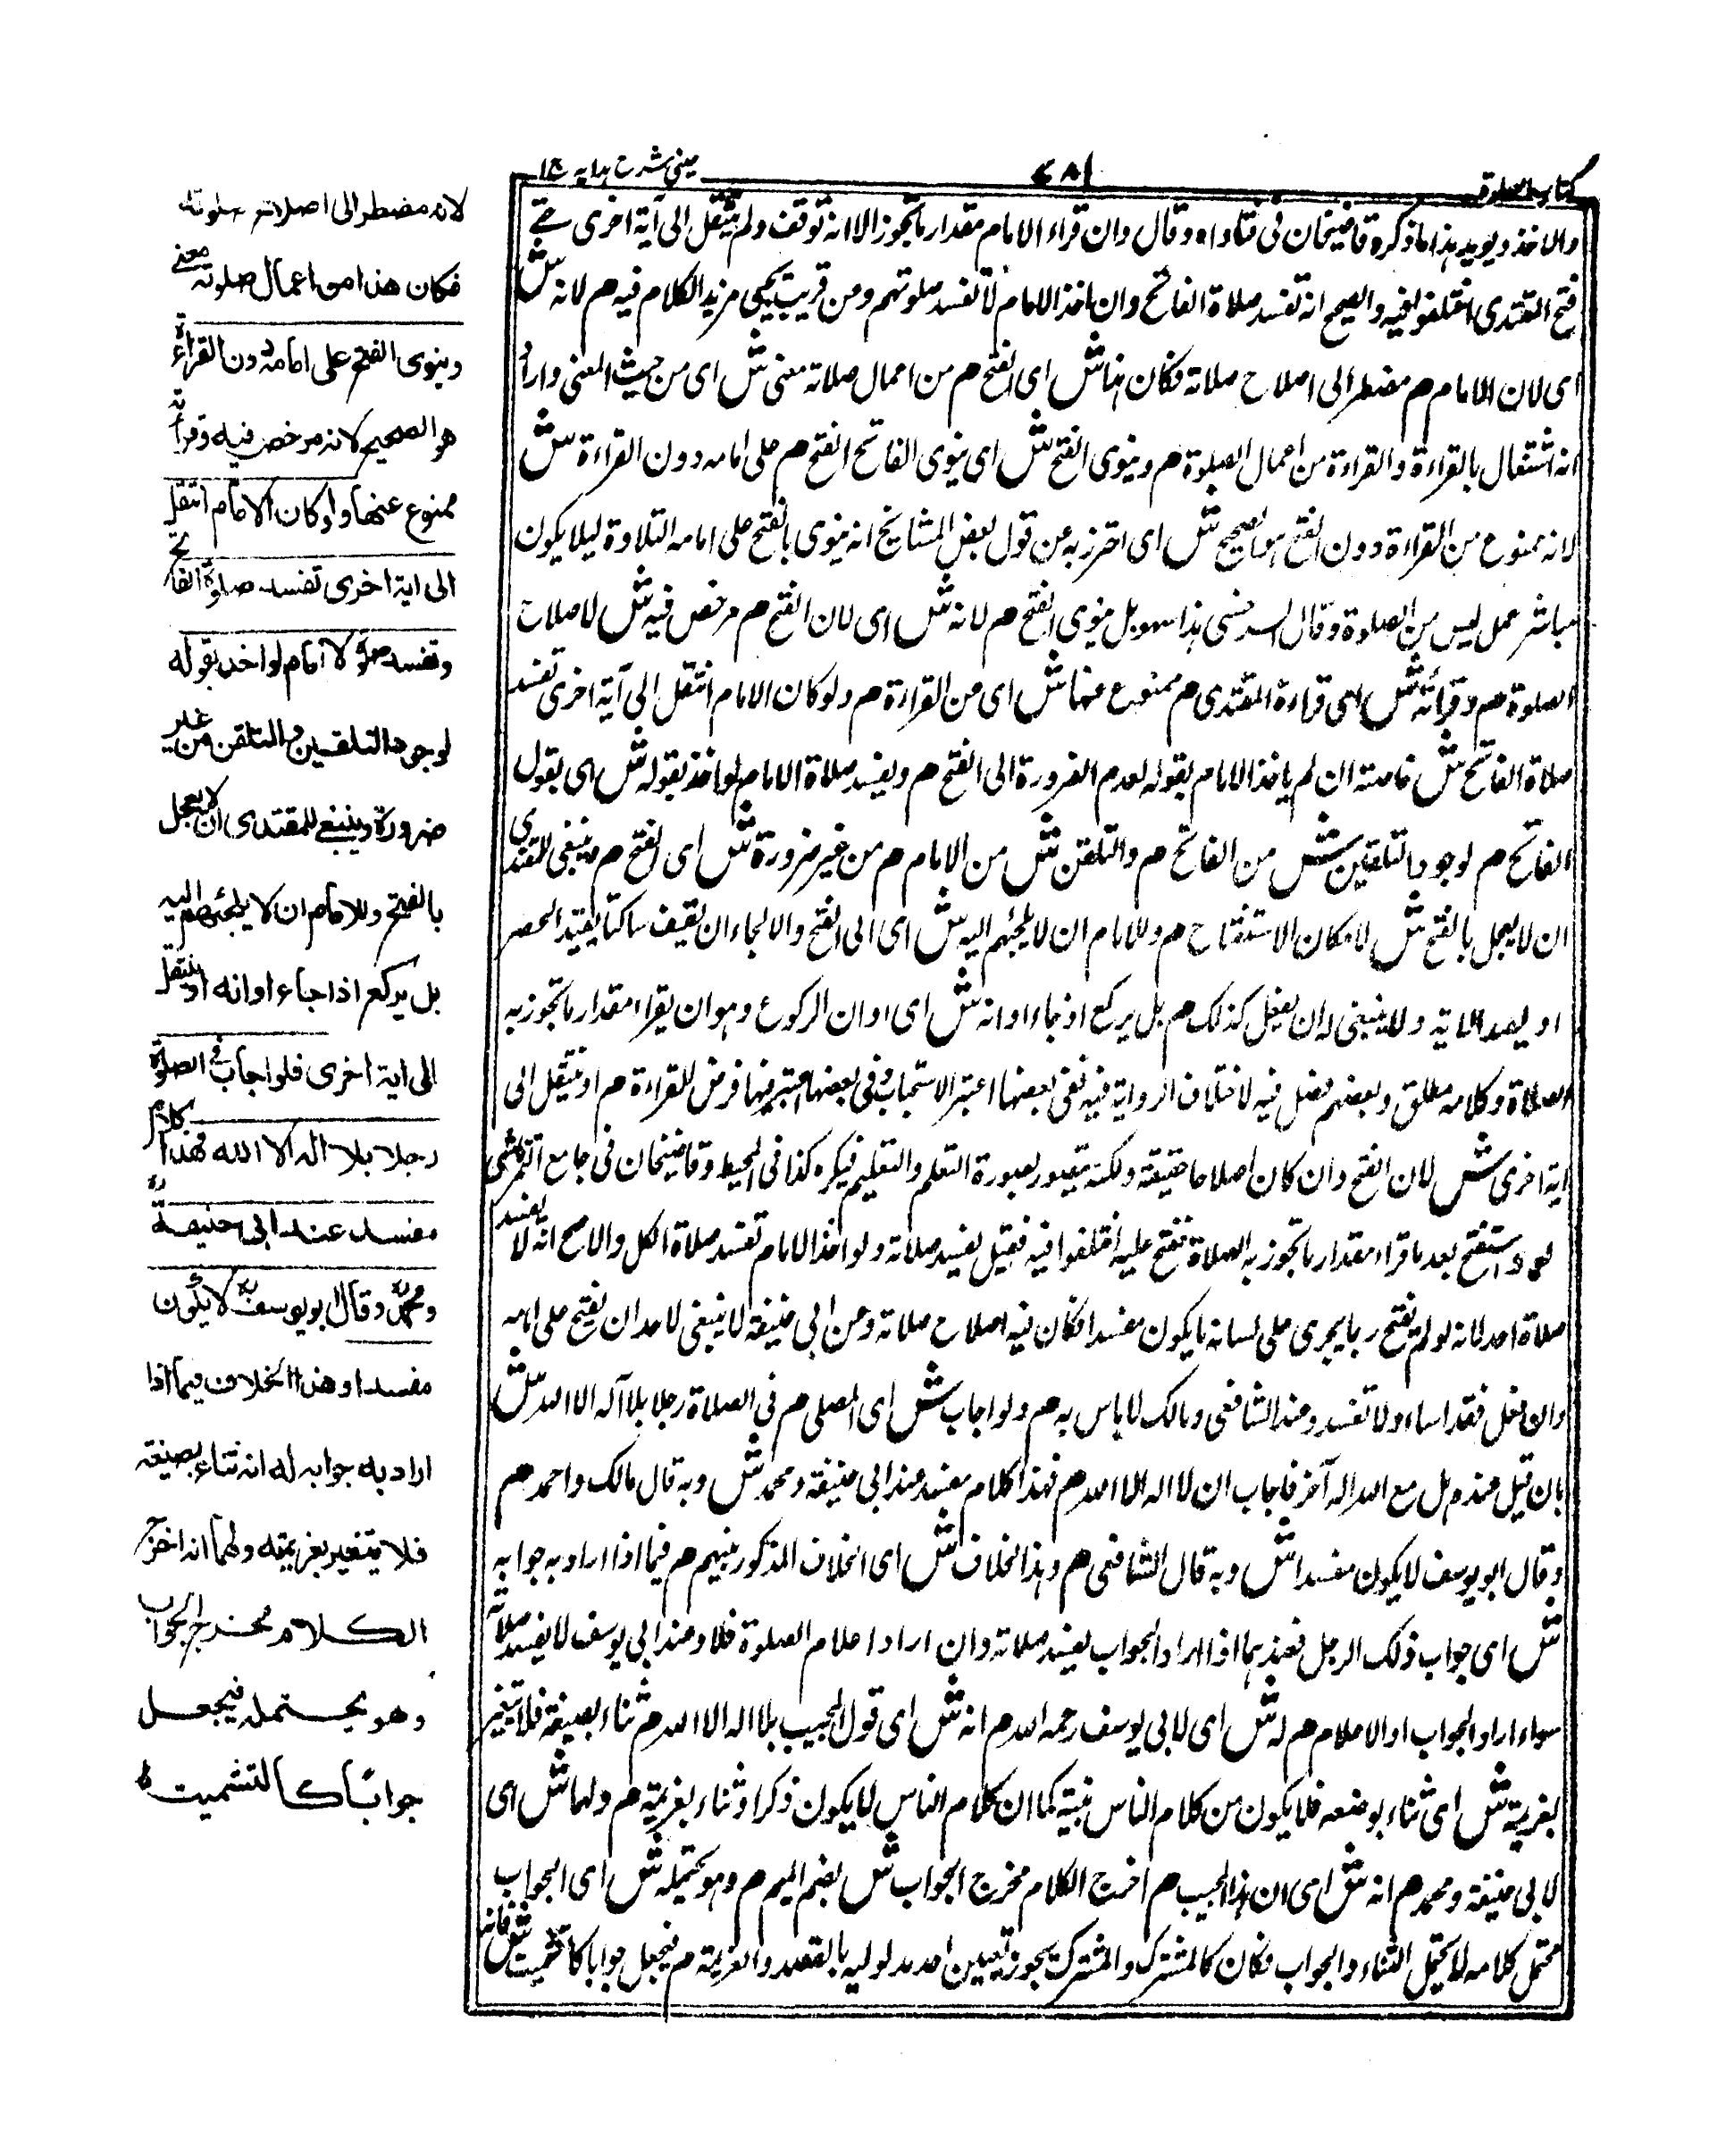 كتاب الصلوة
٧٨١
عيني شرح هدايه ج ١
والاخذ ويويد هذا ما ذكره قاضيخان فى فتاواه وقال وان قراء الامام مقدار ما تجوز الا انه توقف ولم ينتقل الى آية اخرى حتے
فتح المقتدى اختلفوا فيه والصحيح انه تفسد صلاة الفاتح وان اخذ الامام لا تفسد صلوتهم ومن قريب يجيى مزيد الكلام فيه هم لانه ش
اى لان الامام هم مضطر الى اصلاح صلاته فكان هذا ش اى الفتح هم من اعمال صلاته معنى ش اى من حيث المعنى وارا
انه اشتغال بالقراءة والقراءة من اعمال الصلوة هم وينوى الفتح ش اى ينوى الفاتح الفتح هم على امامه دون القراءة ش
لانه ممنوع من القراءة دون الفتح هو الصحيح ش اى احترز به عن قول بعض المشايخ انه ينوى بالفتح على امامه التلاوة ليلا يكون
مباشر عمل ليس من الصلوة وقال السرخسى هذا سهو بل ينوى الفتح هم لانه ش اى لان الفتح هم مرخص فيه ش لاصلاح
الصلوة هم وقرائته ش اى قراءة المقتدى هم ممنوع عنها ش اى من القراءة هم ولو كان الامام انتقل الى آية اخرى تفسد
صلاة الفاتح ش خاصة ان لم ياخذ الامام بقوله لعدم الضرورة الى الفتح هم ويفسد صلاة الامام لو اخذ بقوله ش اى بقول
الفاتح هم لوجود التلقين ش من الفاتح هم والتلقن ش من الامام هم من غير ضرورة ش اى الفتح هم وينبغى للمقتدى
ان لا يعجل بالفتح ش لامكان الاستفتاح هم وللامام ان لا يلجئهم اليه ش اى الى الفتح والالجاء ان يقيف ساكتا بقيد الحصر
او يعيد الاية ولا ينبغى له ان يفعل كذلك هم بل يركع اذ جاء اوانه ش اى اوان الركوع وهو ان يقراء مقدار ما تجوز به
الصلاة وكلامه مطلق وبعضهم فصل فيه لاختلاف الرواية فيه ففى بعضها اعتبر الاستحباب وفى بعضها اعتبر منها فرض للقراءة هم او ينتقل الى
اية اخرى ش لان الفتح وان كان اصلاحا حقيقة ولكنه يتصور بصورة التعلم والتعليم فيكره كذا فى المحيط وقاضيخان فى جامع التمرتاشى
لو استفتح بعد ما قراء مقدار ما تجوز به الصلاة ففتح عليه اختلفوا فيه فقيل يفسد صلاته ولو اخذ الامام تفسد صلاة الكل والاصح انه لا يفسد
صلاة احد لانه لو لم يفتح ربما يجرى على لسانه ما يكون مفسدا فكان فيه اصلاح صلاته وعن ابى حنيفة لا ينبغى لاحد ان يفتح على امامه
وان فعل فقد اساء ولا تفسد وعند الشافعى ومالك لا باس به هم ولو اجاب ش اى المصلى هم فى الصلاة رجلا بلا آله الا الله ش
بان قيل عنده هل مع الله اله آخر فاجاب ان لا اله الا الله هم فهذا كلام مفسد عند ابى حنيفة ومحمد ش وبه قال مالك واحمد هم
وقال ابو يوسف لا يكون مفسدا ش وبه قال الشافعى هم وهذا الخلاف ش اى الخلاف المذكور بينهم هم فيما اذا اراد به جوابه
ش اى جواب ذلك الرجل فعندهما اذا اراد الجواب يفسد صلاته وان اراد اعلام الصلوة فلا وعند ابى يوسف لا يفسد صلاته
سواء اراد الجواب او الاعلام هم له ش اى لابى يوسف رحمه الله هم انه ش اى قول المجيب بلا اله الا الله هم ثناء بصيغة فلا يتغير
بعزيمة ش اى ثناء بوضعه فلا يكون من كلام الناس بنيته كما ان كلام الناس لا يكون ذكرا وثناء بعزيمة هم ولهما ش اى
لابى حنيفة ومحمد هم انه ش اى ان هذا المجيب هم اخرج الكلام مخرج الجواب ش بضم الميم هم وهو يحتمله ش اى الجواب
محتمل كلامه لا يحتمل الثناء والجواب فكان كالمشترك والمشترك يجوز تعيين احد مدلوليه بالقصد والعزيمة هم فيجعل جوابا كالتشميت ش فانه
لانه مضطر الى اصلاح صلوته
فكان هذا من اعمال صلوته معنے
وينوى الفتح على امامه دون القراءة
هو الصحيح لانه مرخص فيه وقراءته
ممنوع عنها ولو كان الامام انتقل
الى اية اخرى تفسد صلوة الفاتح
وتفسد صلوة الامام لو اخذ بقوله
لوجود التلقين والتلقن من غير
ضرورة وينبغے للمقتدى ان لا يعجل
بالفتح وللامام ان لا يلجئهم اليه
بل يركع اذا جاء اوانه او ينتقل
الى اية اخرى فلو اجاب فى الصلوة
رجلا بلا اله الا الله فهذا كلام
مفسد عند ابى حنيفة رح
ومحمد رح وقال ابو يوسف رح لا يكون
مفسدا وهذا الخلاف فيما اذا
اراد به جوابه له انه ثناء بصيغته
فلا يتغير بعزيمته ولهما انه اخرج
الكلام مخرج الجواب
وهو يحتمله فيجعل
جوابا كالتشميت